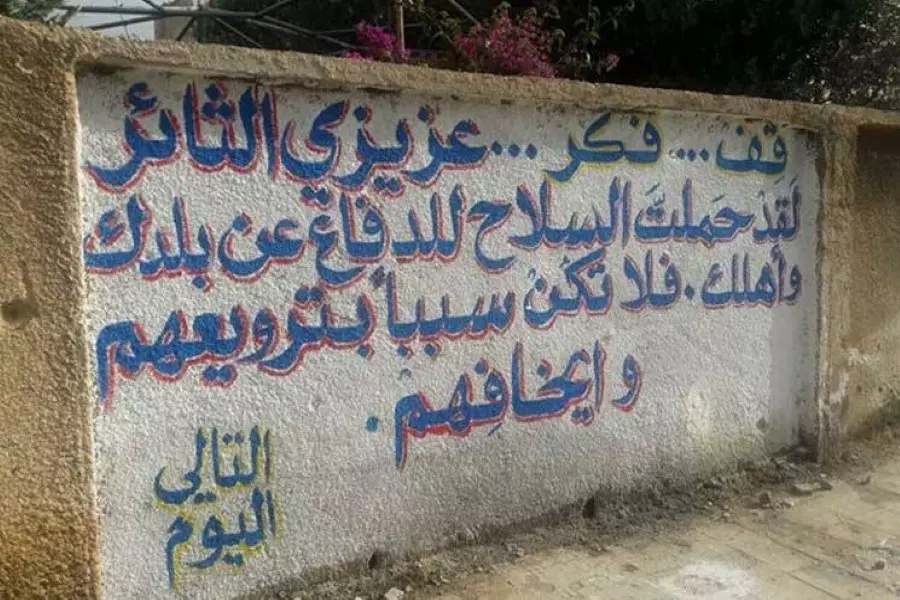 قف ... فكر ... عزيزي الثائر
لَقدْ حَملتَ السلاح للدفاع عن بلدك
وأهلك . فلا تكنْ سبباً بترويعهم
وايخافِهمْ .
التالي
اليوم